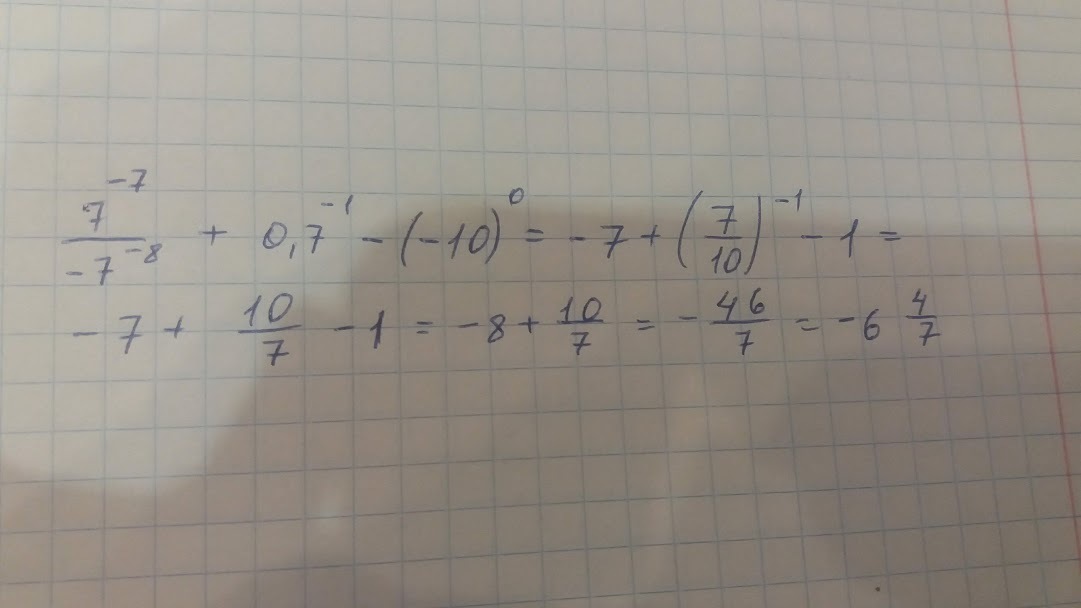 7^{-7} / -7^{-8} + 0,7^{-1} - (-10)^{0} = -7 + (7/10)^{-1} - 1 =
-7 + 10/7 - 1 = -8 + 10/7 = - 46/7 = -6 4/7